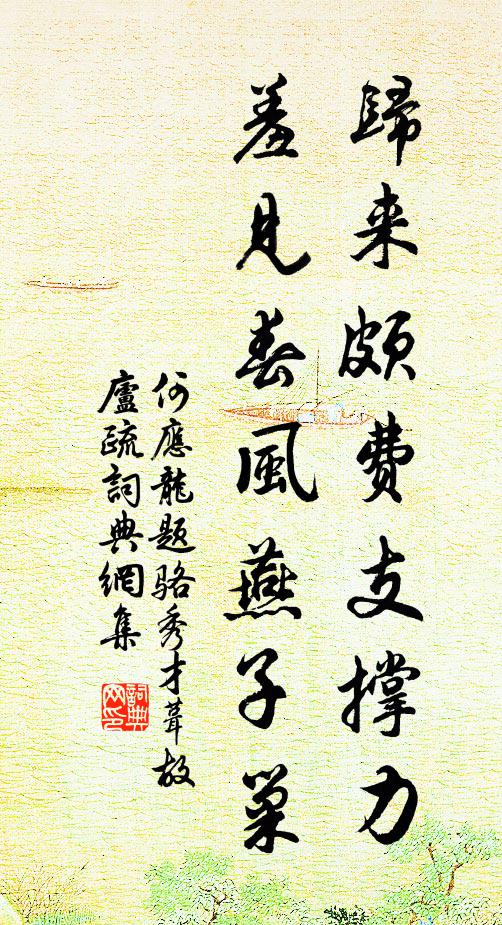 歸来頗費支撐力
羞見春風燕子巢
何應龍題骆秀才葺故
廬疏詞典網集
詞典网印